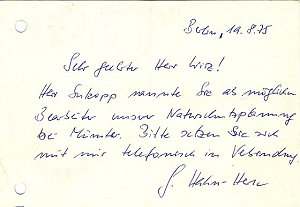 Berlin, 19.8.75
Sehr geehrter Herr Wirz!
Herr Sukopp nannte Sie als möglichen
Bearbeiter unser Naturschutzplanung
bei Münster. Bitte setzen Sie sich
mit mir telefonisch in Verbindung.
G. Hahn-Herse